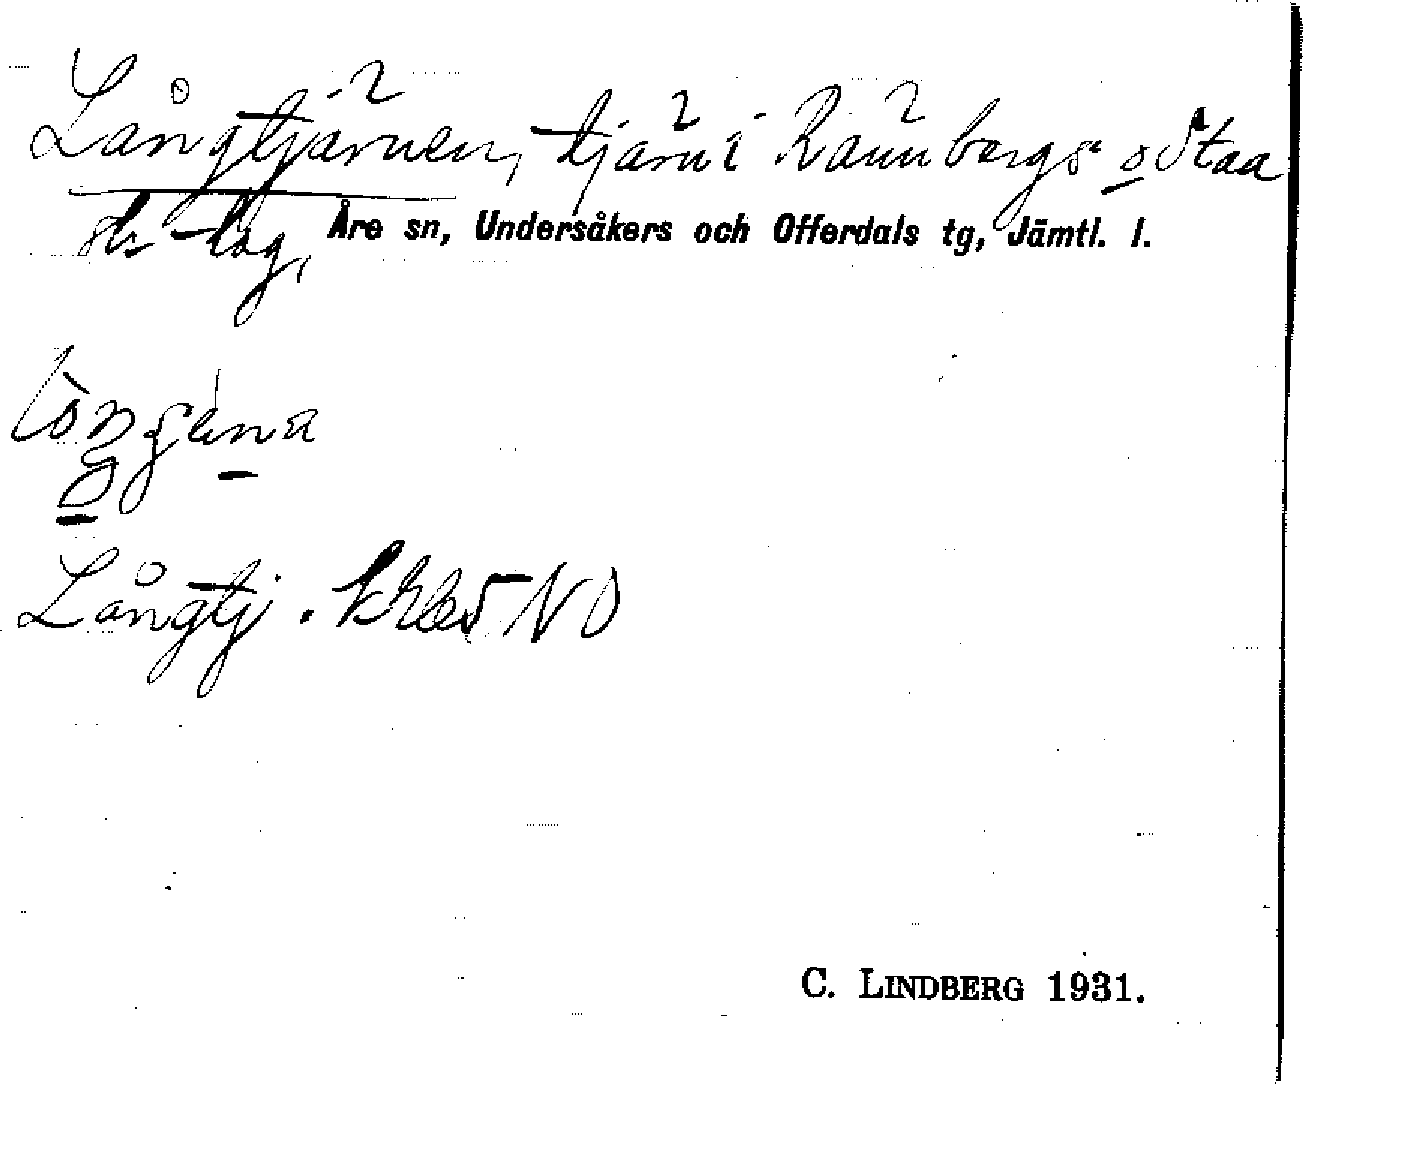 Långtjärnen, tjärn i Rännbergs- o Staa
sk-lag, Åre sn, Undersåkers och Offerdals tg, Jämtl. l.
Långtj. NO
C. LINDBERG 1931.